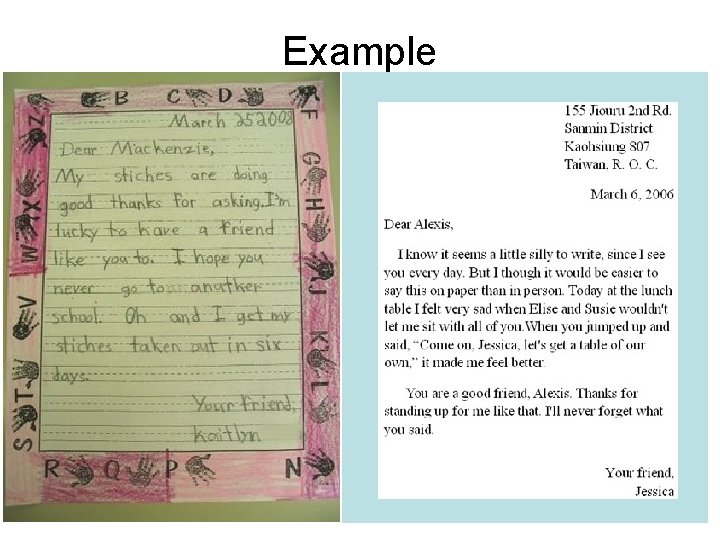 Example
B C D
F
G
H
J
K
L
Z
X
W
V
T
S
March 25 2008
Dear Mackenzie,
My stiches are doing
good thanks for asking. I'm
lucky to have a friend
like you to. I hope you
never go to another
school. Oh and I get my
stiches taken out in six
days.
Your friend,
Kaitlyn
R Q P N
155 Jiouru 2nd Rd.
Sanmin District
Kaohsiung 807
Taiwan, R. O. C.
March 6, 2006
Dear Alexis,
I know it seems a little silly to write, since I see
you every day. But I though it would be easier to
say this on paper than in person. Today at the lunch
table I felt very sad when Elise and Susie wouldn't
let me sit with all of you.When you jumped up and
said, “Come on, Jessica, let's get a table of our
own,” it made me feel better.
You are a good friend, Alexis. Thanks for
standing up for me like that. I'll never forget what
you said.
Your friend,
Jessica